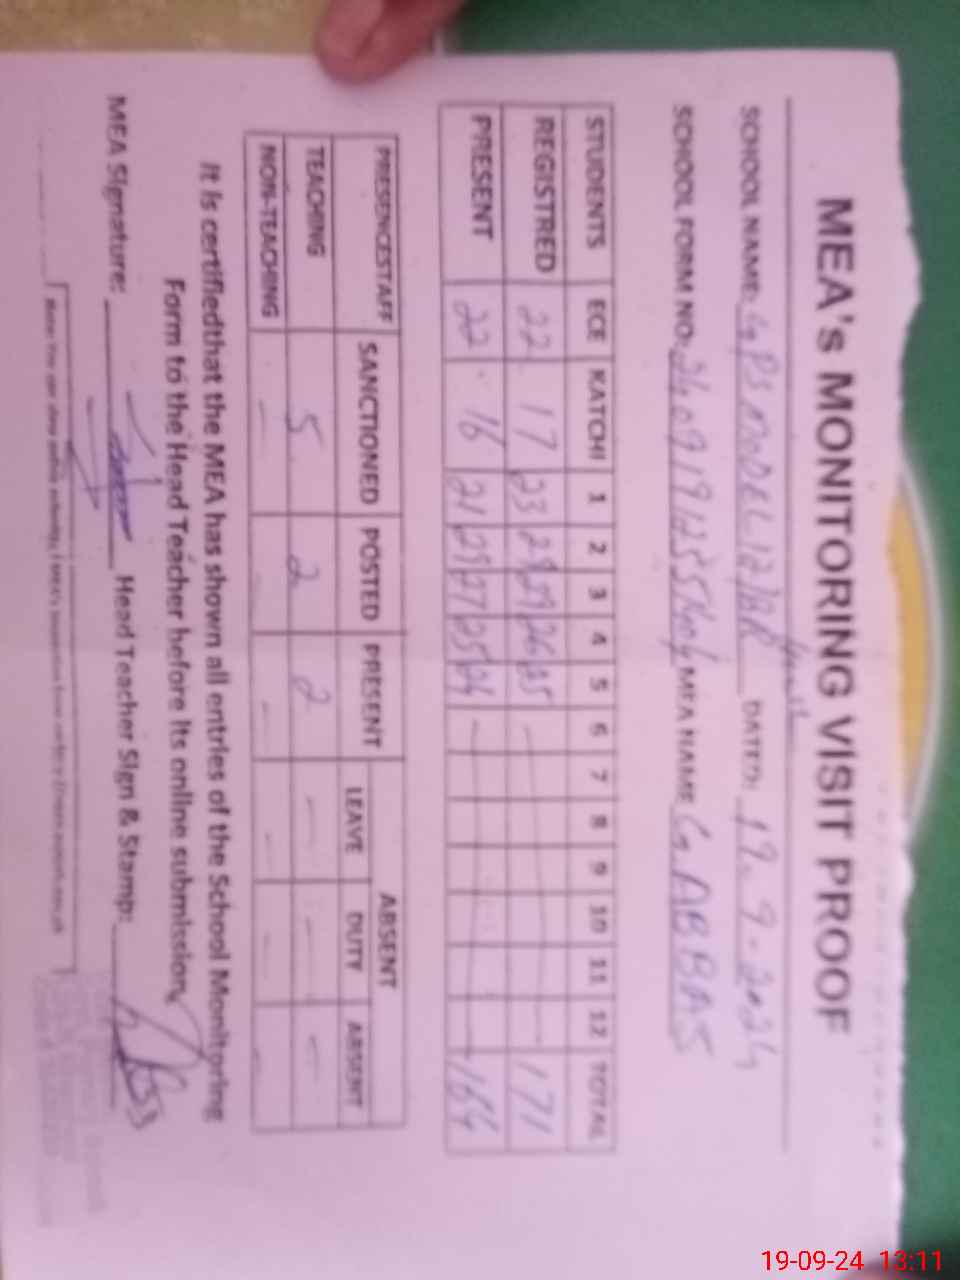 MEA's MONITORING VISIT PROOF
SCHOOL NAME: GPS MODEL 12/BR DATED: 19-9-2024
SCHOOL FORM NO: MEA NAME G. ABBAS
STUDENTS ECE KATCHI 1 2 3 4 5 6 7 8 9 10 11 12 TOTAL
REGISTRED 22 17 23 29 29 26 25 171
PRESENT 22 16 21 29 27 25 24 164
PRESENCESTAFF SANCTIONED POSTED PRESENT ABSENT
LEAVE DUTY ABSENT
TEACHING 5 2 2 - - -
NON-TEACHING - - - - -
It is certifiedthat the MEA has shown all entries of the School Monitoring
Form to the Head Teacher before its online submission.
MEA Signature: Head Teacher Sign & Stamp:
19-09-24 13:11